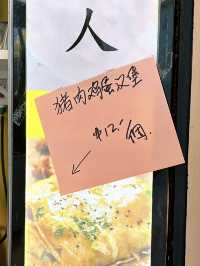 人
猪肉鸡蛋汉堡
¥12/個